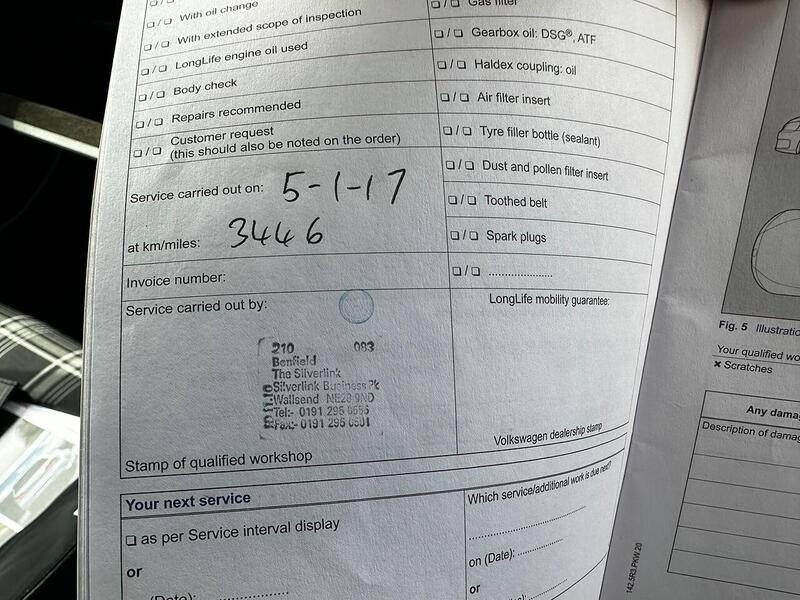 ❏ / ❏ With oil change
❏ / ❏ With extended scope of inspection
❏ / ❏ LongLife engine oil used
❏ / ❏ Body check
❏ / ❏ Repairs recommended
❏ / ❏ Customer request
(this should also be noted on the order)
Service carried out on: 5-1-17
at km/miles: 3446
Invoice number:
Service carried out by:
210 083
Benfield
The Silverlink
Silverlink Business Pk
Wallsend NE28 9ND
Tel:- 0191 295
Fax:- 0191 295
Stamp of qualified workshop
❏ / ❏ Gas filter
❏ / ❏ Gearbox oil: DSG®, ATF
❏ / ❏ Haldex coupling: oil
❏ / ❏ Air filter insert
❏ / ❏ Tyre filler bottle (sealant)
❏ / ❏ Dust and pollen filter insert
❏ / ❏ Toothed belt
❏ / ❏ Spark plugs
❏ / ❏ ....................
LongLife mobility guarantee:
Volkswagen dealership stamp
Your next service
❏ as per Service interval display
or
(Date): ....................
Which service/additional work is due next?
....................
on (Date): ............
or
142.5R3.PKW.20
Fig. 5 Illustratio
Your qualified wo
✖ Scratches
Any damag
Description of damag